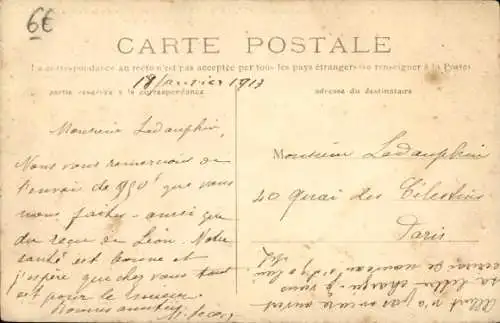 6€
CARTE POSTALE
La correspondance au recto n'est pas acceptée par tous les pays étrangers (se renseigner à la Poste)
18 Janvier 1913
partie réservée à la correspondance
adresse du destinataire
Monsieur Ladauphin,
Nous vous remercions de
l'envoi de 950f que vous
nous faites - ainsi que
du reçu de Léon. Notre
santé est bonne et
j'espère que chez vous tout
est pour le
Bonnes amitiés
Monsieur Ladauphin
40 Quai des Célestins
Paris
Albert n'a pas encore ouvert
sa lettre chargée, je vous
écrirai de nouveau